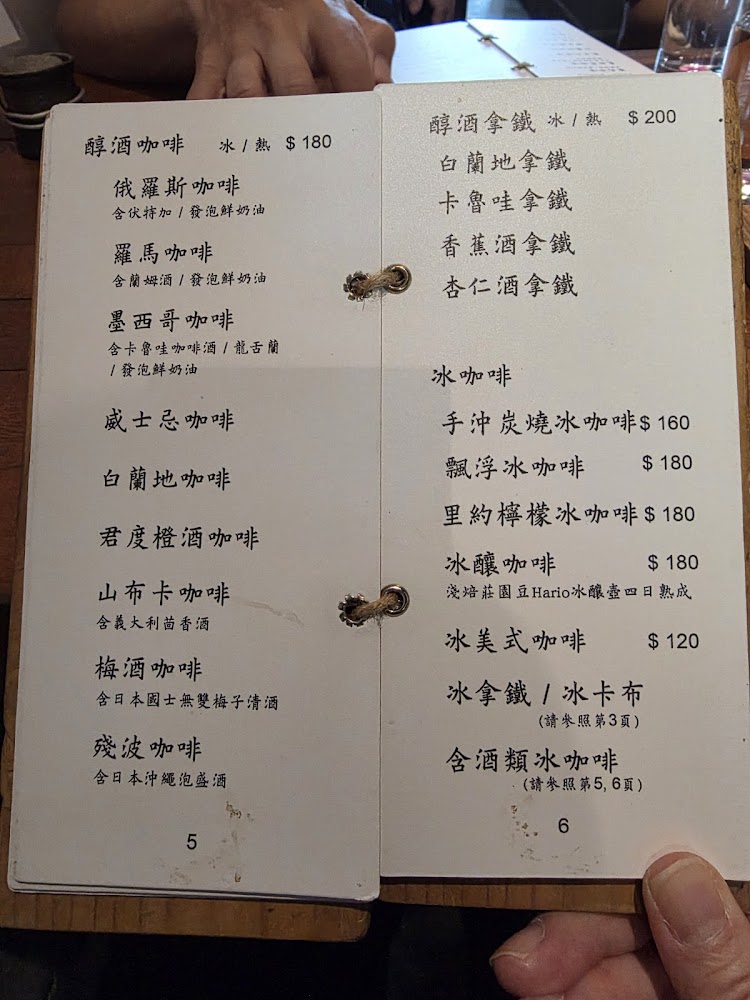 醇酒咖啡 冰 / 熱 $ 180
俄羅斯咖啡
含伏特加 / 發泡鮮奶油
羅馬咖啡
含蘭姆酒 / 發泡鮮奶油
墨西哥咖啡
含卡魯哇咖啡酒 / 龍舌蘭
/ 發泡鮮奶油
威士忌咖啡
白蘭地咖啡
君度橙酒咖啡
山布卡咖啡
含義大利茴香酒
梅酒咖啡
含日本國士無雙梅子清酒
殘波咖啡
含日本沖繩泡盛酒
5
醇酒拿鐵 冰 / 熱 $ 200
白蘭地拿鐵
卡魯哇拿鐵
香蕉酒拿鐵
杏仁酒拿鐵
冰咖啡
手沖炭燒冰咖啡 $ 160
飄浮冰咖啡 $ 180
里約檸檬冰咖啡 $ 180
冰釀咖啡 $ 180
淺焙莊園豆Hario冰釀壺四日熟成
冰美式咖啡 $ 120
冰拿鐵 / 冰卡布
(請參照第3頁)
含酒類冰咖啡
(請參照第5, 6頁)
6